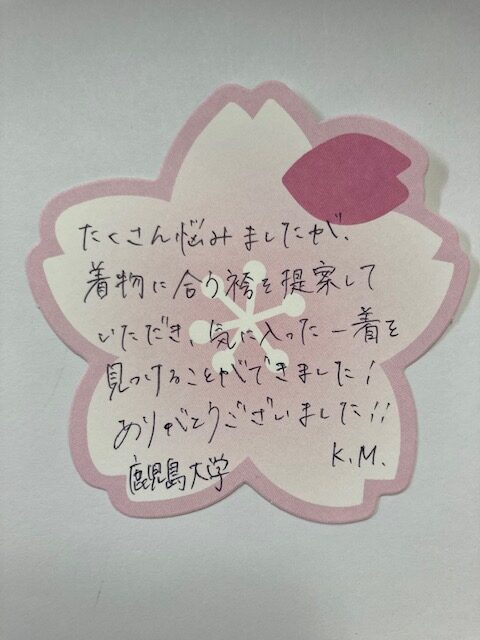 たくさん悩みましたが、
着物に合う袴を提案して
いただき、気に入った一着を
見つけることができました!
ありがとうございました!!
鹿児島大学 K.M.